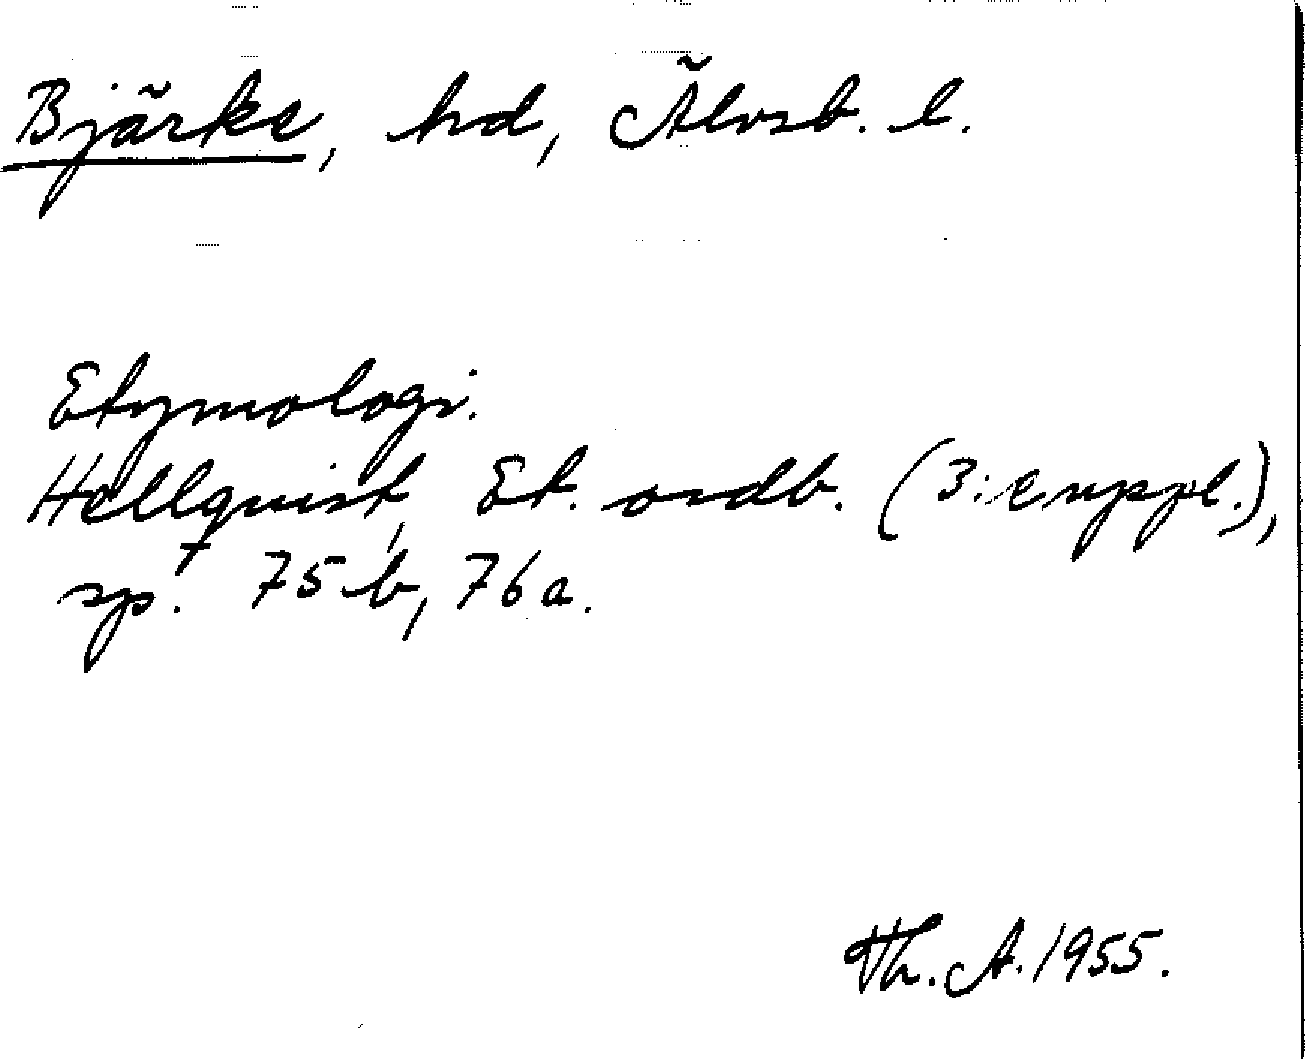 Bjärke, hd, Älvsb. l.
Etymologi.
Hellquist, Et. ordb. (3:e uppl.),
sp. 75 b, 76 a.
Th. A. 1955.